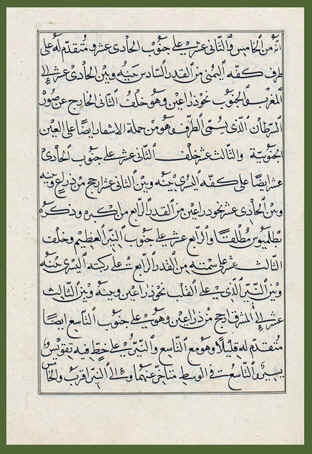 انه من الخامس والثاني عشر على جنوب الحادي عشر ومتقدم له على
طرف كفه اليمنى من القدر السادس بينه وبين الحادي عشر الى
المغرب والجنوب نحو ذراعين وهو خلف الثاني الخارج عن صورة
السرطان الذي يسمى الطرف وهو من جملة الاسفار ايضا على العين
الجنوبية والثالث عشر خلف الثاني عشر على جنوب الحادي
عشر ايضا على كفه اليسرى بينه وبين الثاني عشر ارجح من ذراع وبينه
وبين الحادي عشر نحو ذراعين من القدر الرابع من اكبره وذكره
بطلميوس مطلقا والرابع عشر على جنوب النير العظيم وخلف
الثالث عشر على سمته من القدر الرابع على ركبته اليسرى بينه
وبين النير الذي على القلب نحو ذراعين وبينه وبين الثالث
عشر الى المشرق ارجح من ذراعين وهو على جنوب التاسع ايضا
متقدم له قليلا وهو مع التاسع والنير على خط فيه تقويس
يسير والتاسع في الوسط متأخر عنهما وهو الى النير اقرب والخامس